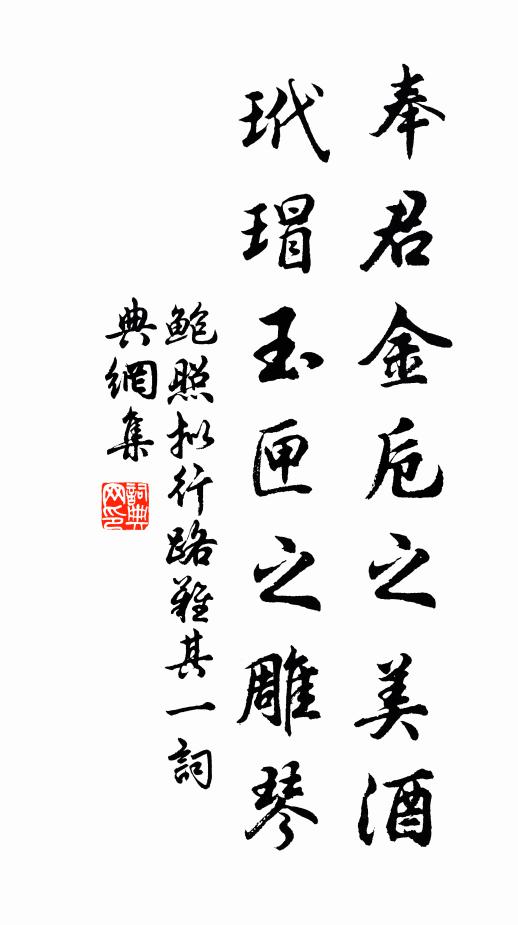 奉君金卮之美酒
玳瑁玉匣之雕琴
鮑照拟行路難其一詞
典網集
詞典
网印